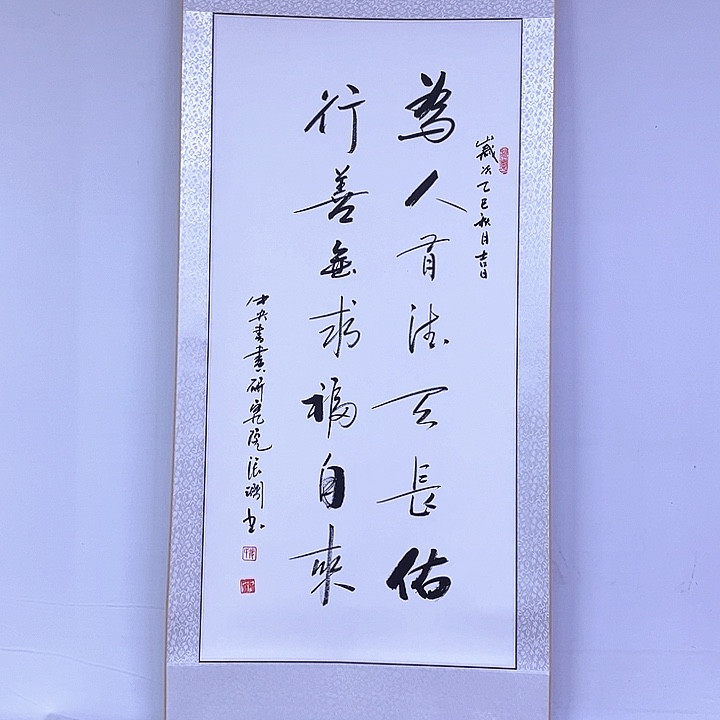 歲次乙巳秋月吉日
為人有德天長佑
行善無求福自來
中央書畫研究院張書